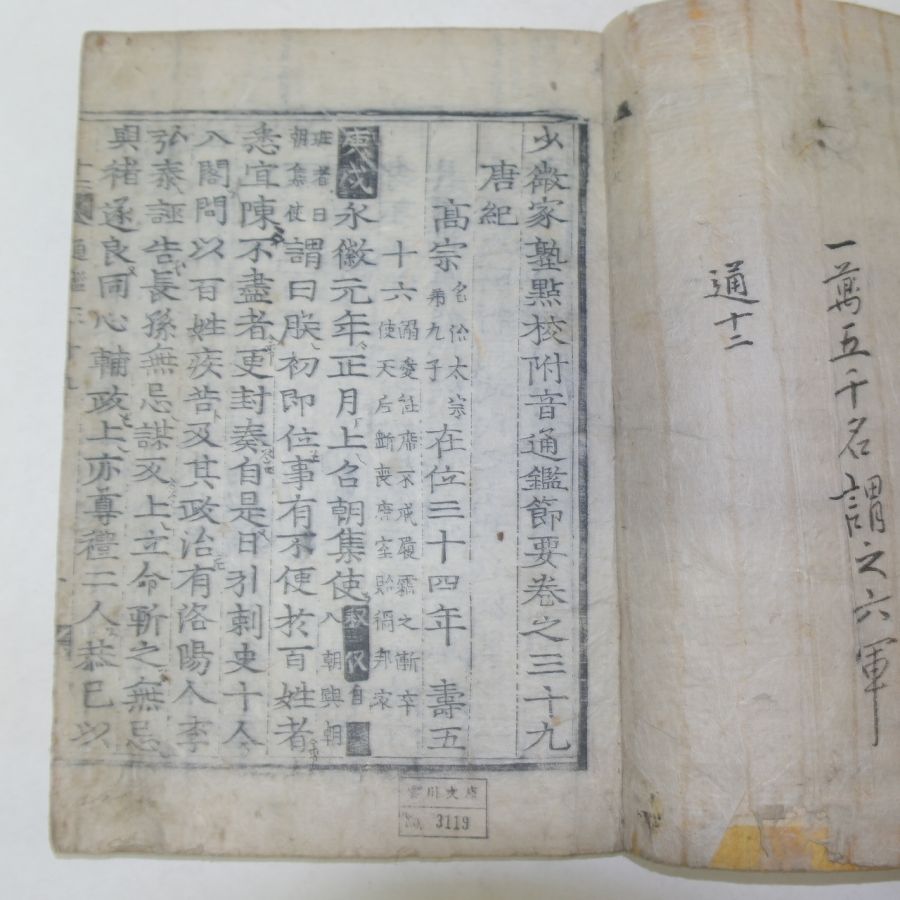 一萬五千名謂之六軍
通十二
少微家塾點校附音通鑑節要卷之三十九
唐紀
高宗名治太宗第九子在位三十四年 壽五
十六溺愛衽席不戒履霜之漸卒使天后斲喪唐室貽禍邦家
庚戌永徽元年正月上召朝集使自入朝與朝
班者曰朝集使謂曰朕初即位事有不便於百姓者
悉宜陳不盡者更封奏自是日引刺史十人
入閤問以百姓疾苦及其政治有洛陽人李
弘泰誣告長孫無忌謀反上立命斬之無忌
與褚遂良同心輔政上亦尊禮二人恭己以
文庫
No. 3119